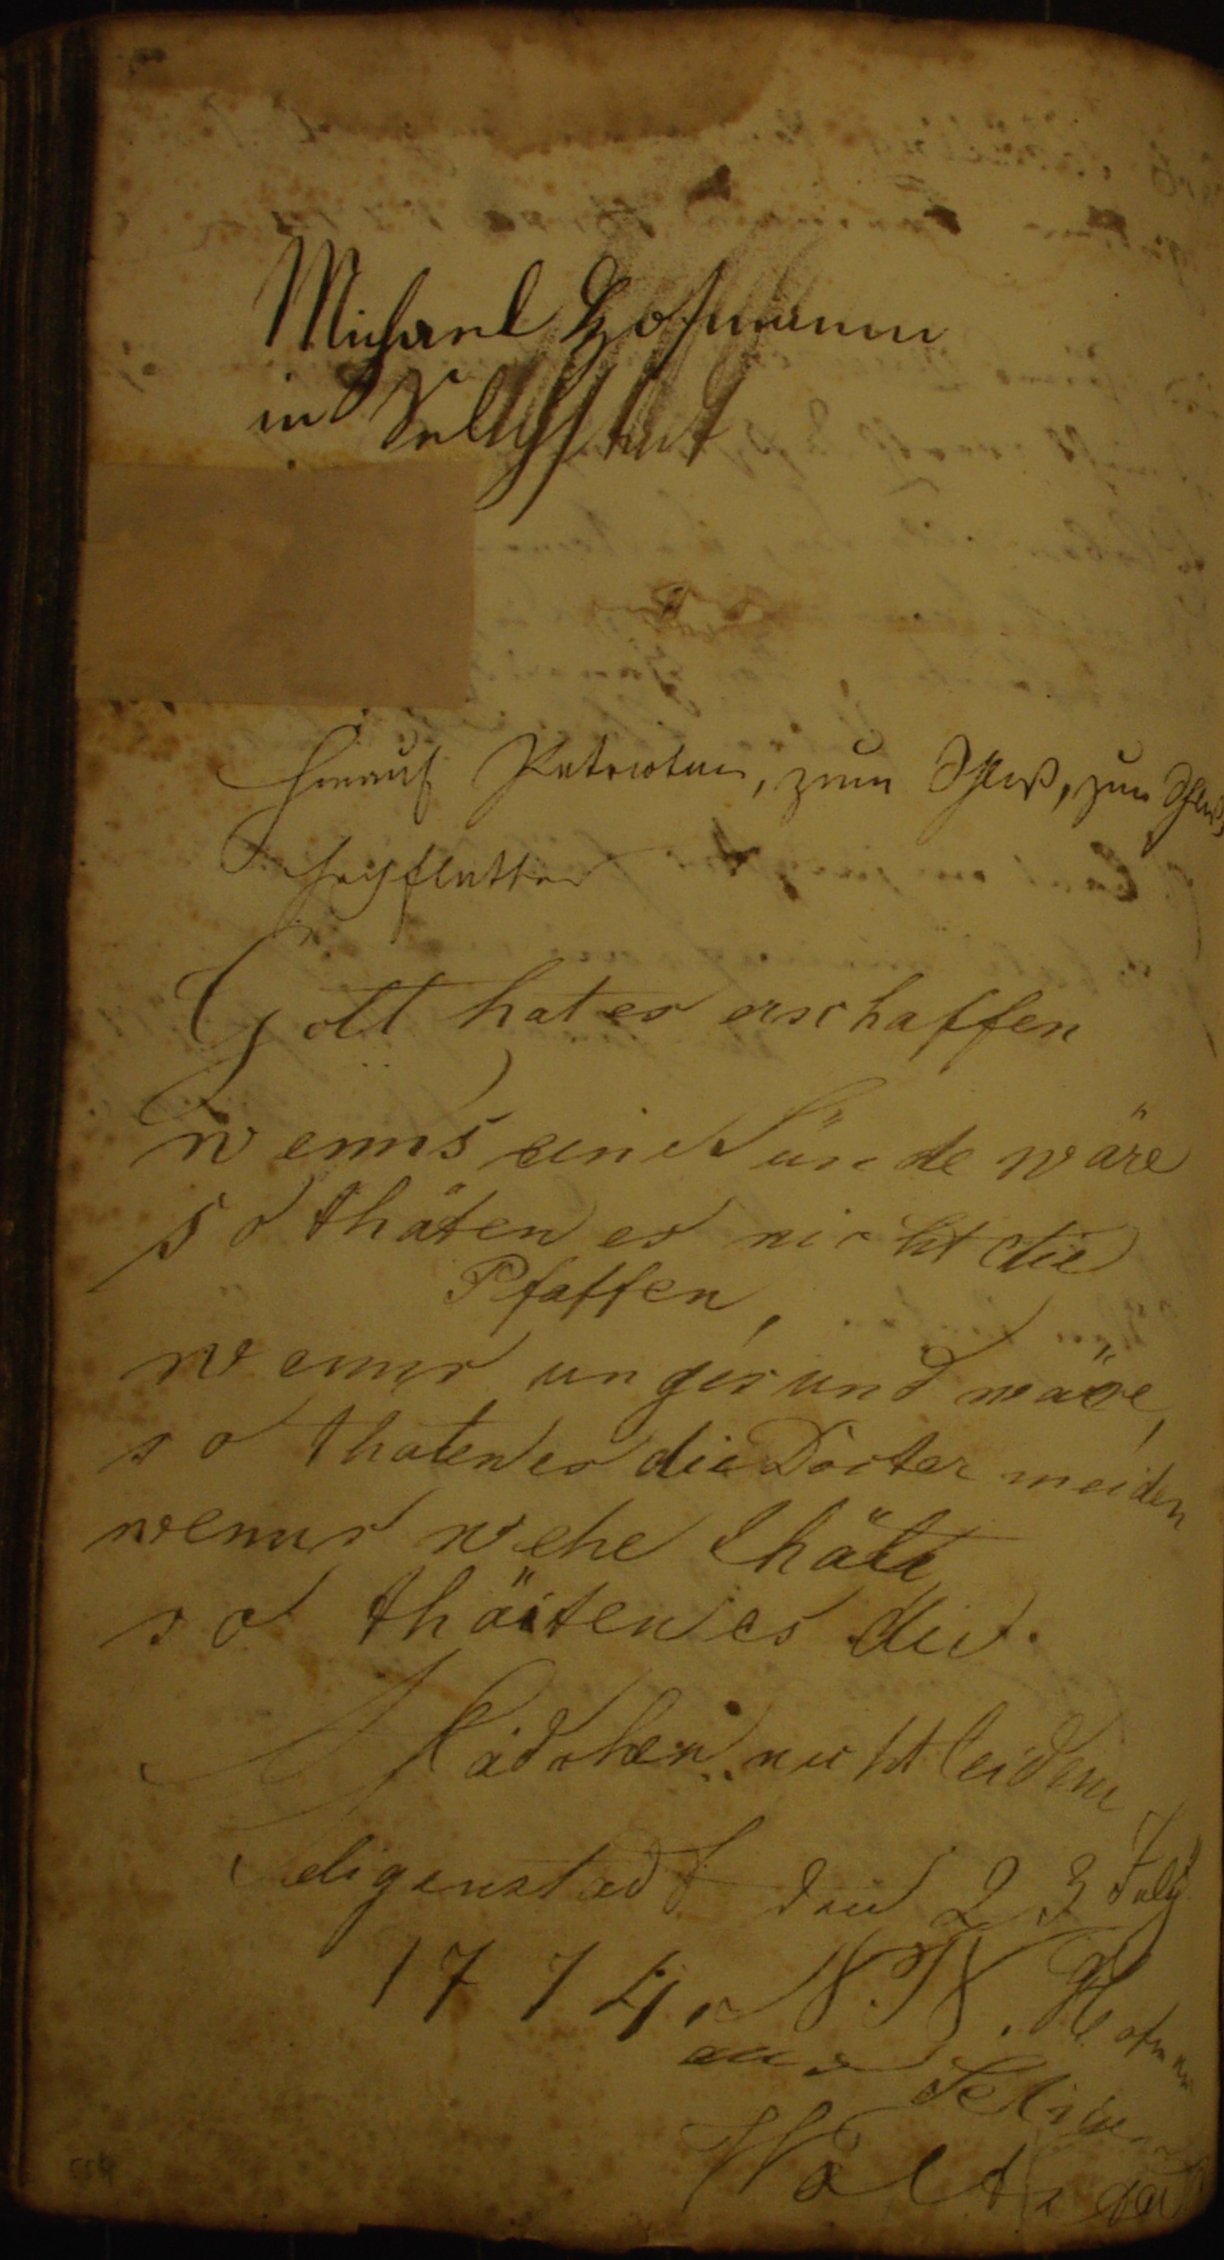 Michael Hofmann
in Seligstat
Hierauf Patrioten, zum
Gott hat es erschaffen
wenns eine Sünde wäre
so thäten es nicht die
Pfaffen,
wenns ungesund wäre,
so thaten es die Docter meiden
wenns wehe thäte
so thäten es die
Mädchen nicht leiden
Seligenstadt den 23 July
1774. M. Hofman
aus